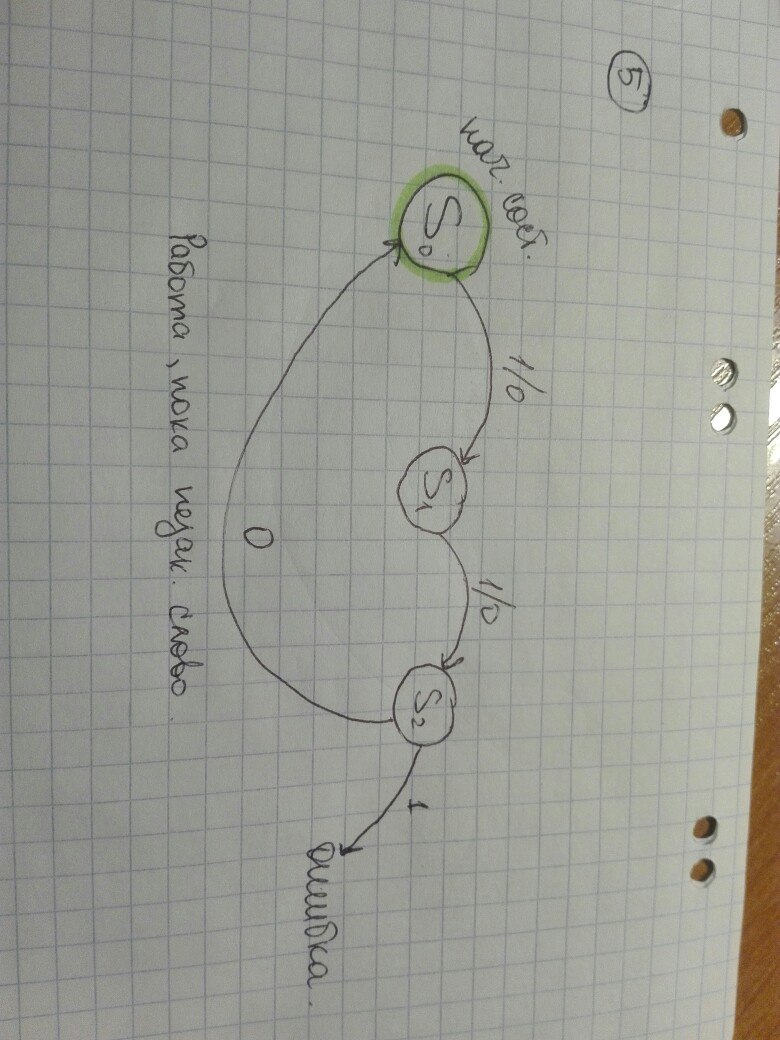 5
нач. сост.
1/0
1/0
S₀
S₁
S₂
1
ошибка.
0
Работа, пока незак. слово.